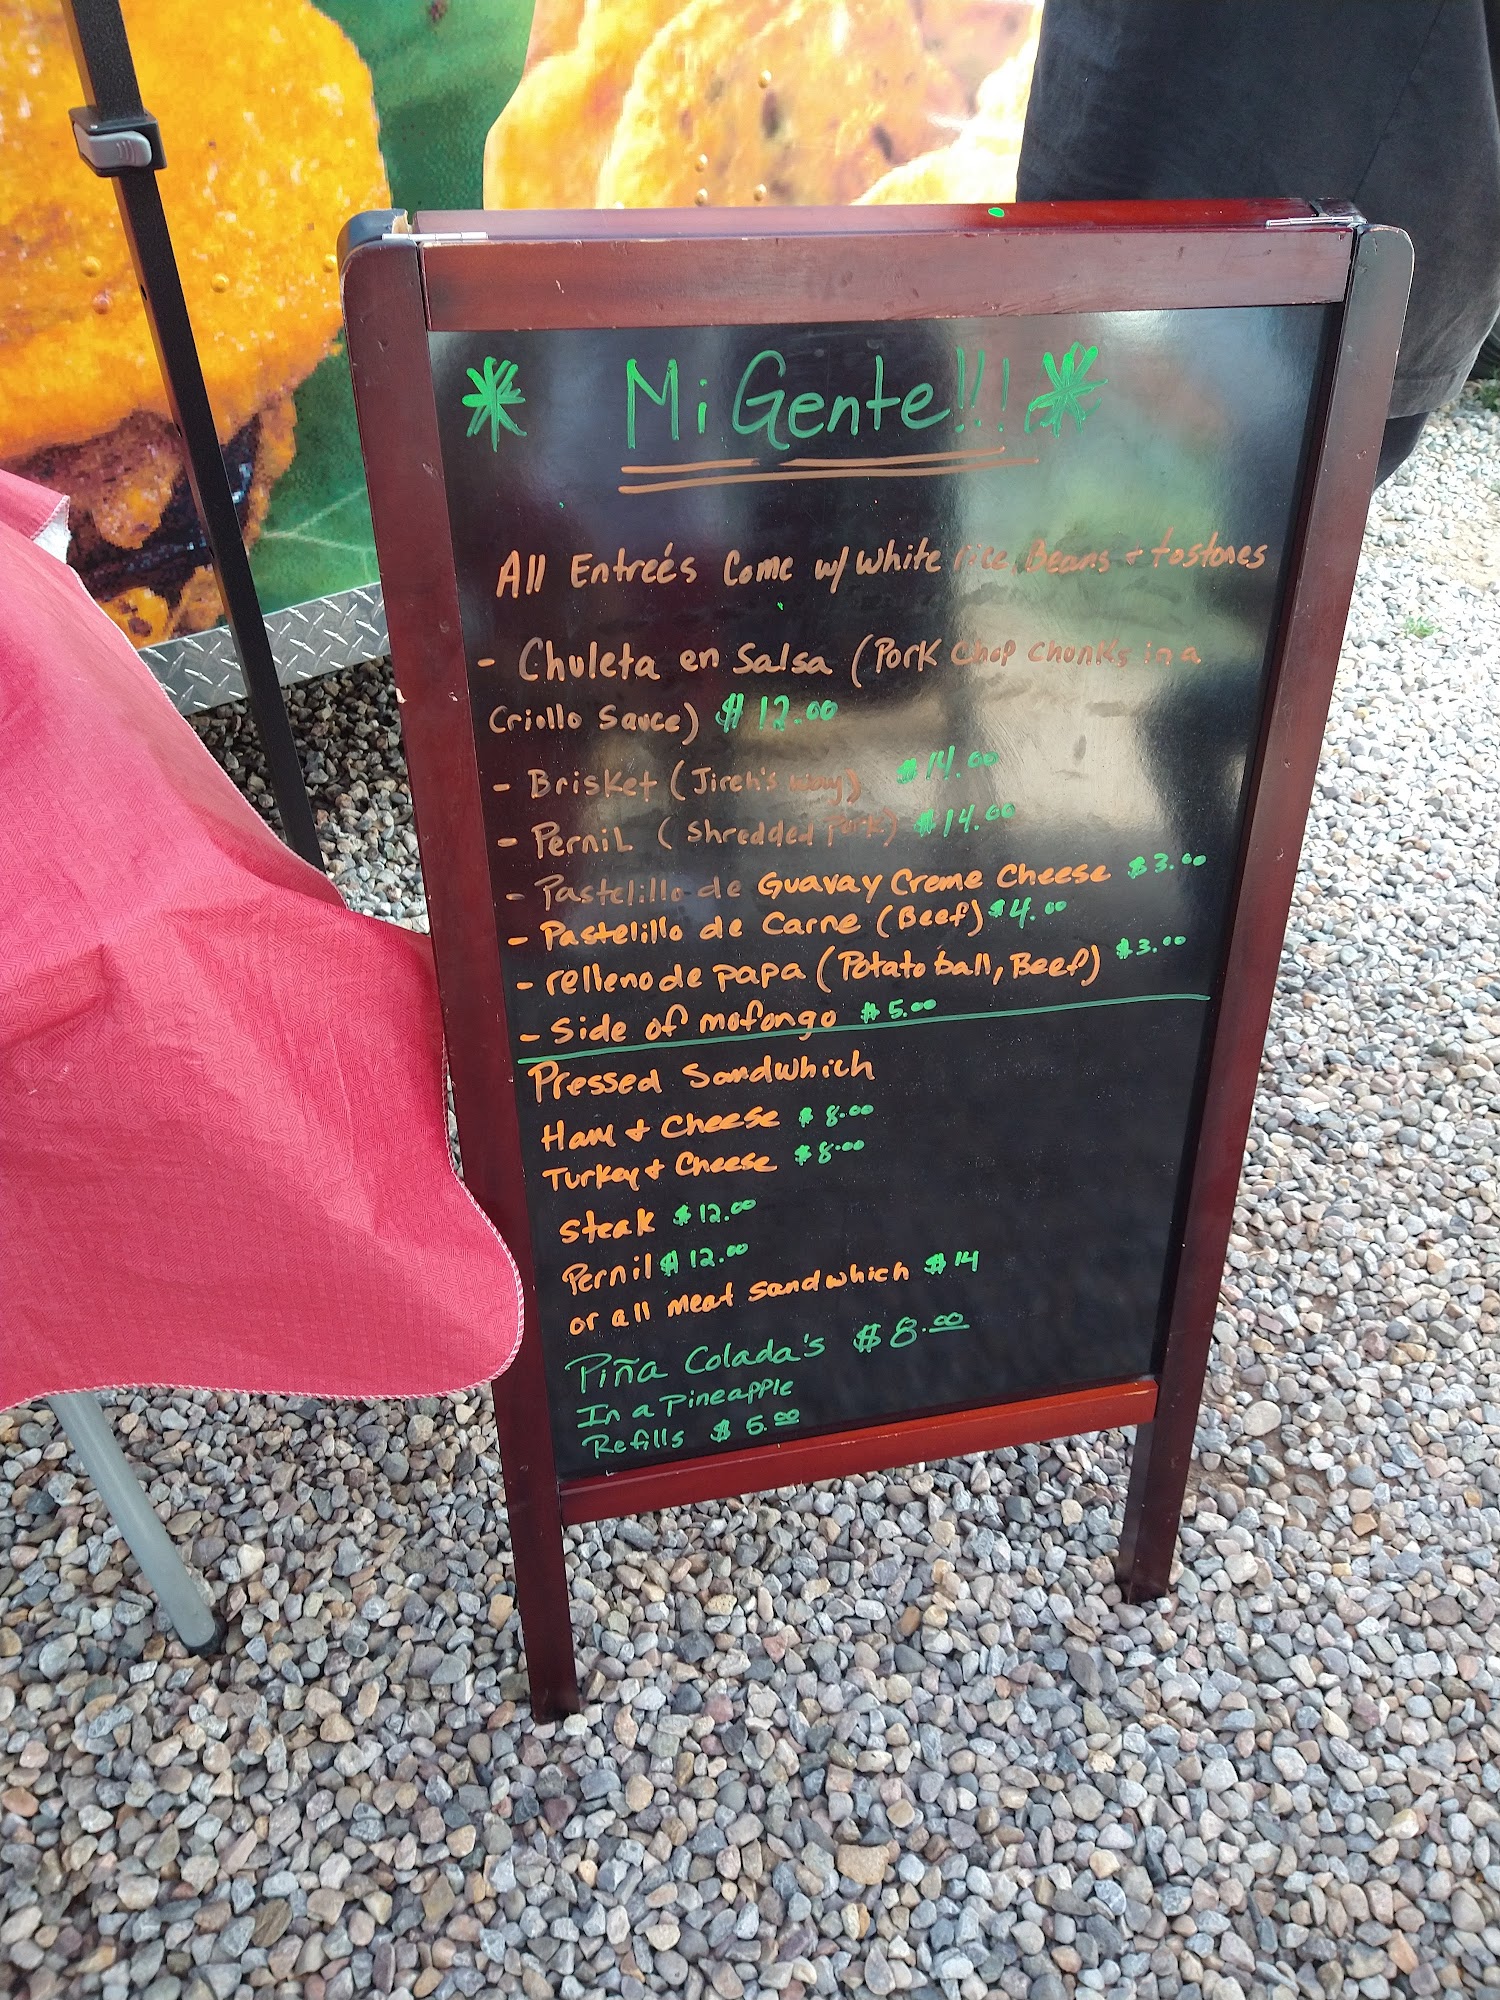 Mi Gente!!!
All Entreés Come w/ White rice, Beans + tostones
- Chuleta en Salsa (Pork Chop Chunks in a
Criollo Sauce) $12.00
- Brisket (Jireh's way) $14.00
- Pernil (Shredded Pork) $14.00
- Pastelillo de Guavay Creme Cheese $3.00
- Pastelillo de Carne (Beef) $4.00
- relleno de papa (Potato ball, Beef) $3.00
- Side of mofongo $5.00
Pressed Sandwhich
Ham + Cheese $8.00
Turkey + Cheese $8.00
Steak $12.00
Pernil $12.00
or all meat Sandwhich $14
Piña Colada's $8.00
In a Pineapple
Refills $5.00